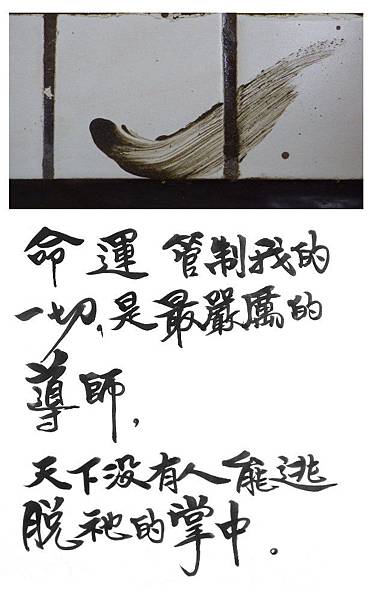 命運 管制我的
一切,是最嚴厲的
導師,
天下没有人能逃
脫祂的掌中.